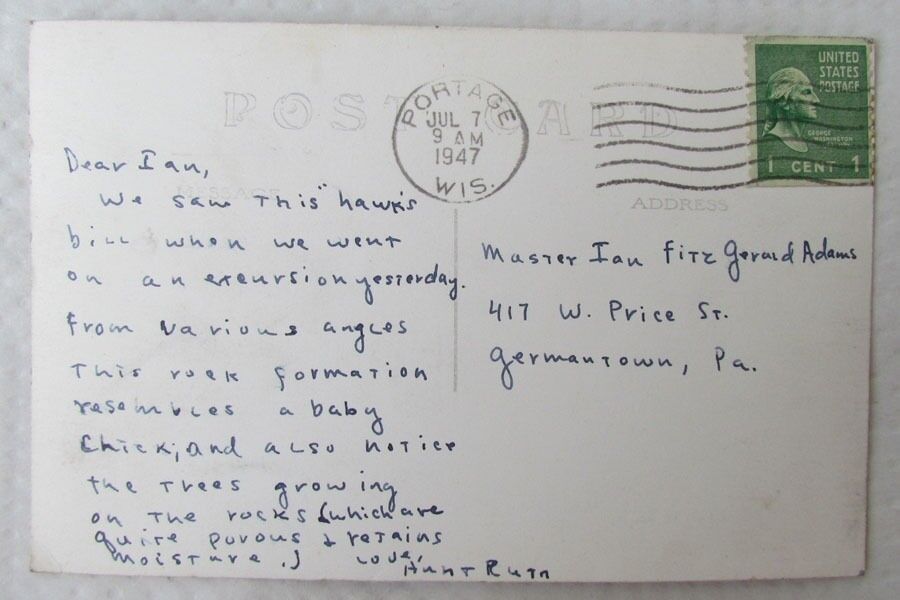 POST CARD
PORTAGE
JUL 7
9 AM
1947
WIS.
UNITED
STATES
POSTAGE
GEORGE
WASHINGTON
1 CENT 1
MESSAGE
ADDRESS
Dear Ian,
We saw This "hawks
bill when we went
on an excursion yesterday.
From various angles
This rock formation
resembles a baby
Chick; and also notice
the Trees growing
on The rocks (which are
quite porous & retains
moisture.)
Love,
Aunt Ruth
Master Ian FitzGerald Adams
417 W. Price St.
Germantown, Pa.